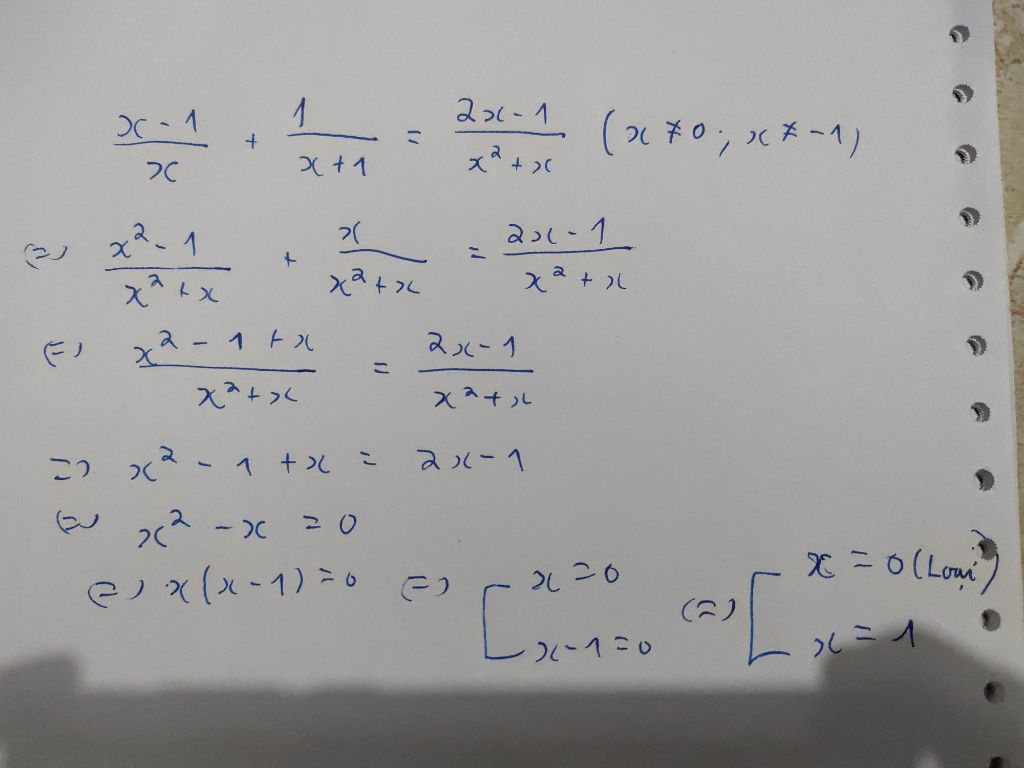 (x-1)/x + 1/(x+1) = (2x-1)/(x²+x) (x ≠ 0; x ≠ -1)
(=) (x²-1)/(x²+x) + x/(x²+x) = (2x-1)/(x²+x)
(=) (x²-1+x)/(x²+x) = (2x-1)/(x²+x)
=) x²-1+x = 2x-1
(=) x²-x = 0
(=) x(x-1)=0 (=) [x=0; x-1=0 (=) [x=0 (Loại); x=1